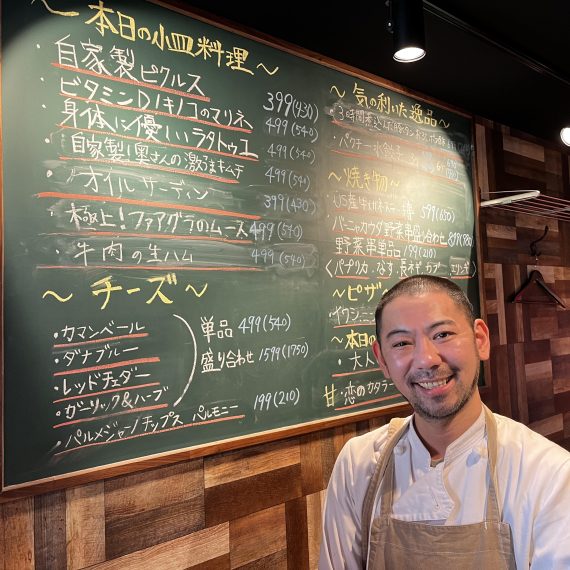 ～本日の小皿料理～
・自家製ピクルス 399(430)
ビタミンD!キノコのマリネ 499(540)
身体に優しいラタトゥユ 499(540)
・自家製!奥さんの激うまキムチ 499(540)
・オイルサーディン 399(430)
・極上!フアアグラのムース 499(540)
・牛肉の生ハム 499(540)
～チーズ～
・カマンベール
・ダナブルー
・レッドチェダー
・ガーリック&ハーブ
単品 499(540)
盛り合わせ 1599(1750)
・パルメジャーノチップス パルモニー 199(210)
～気の利いた逸品～
・3時間煮込んだ
・パクチー水餃子
～焼き物～
599(650)
・バーニャカウダ野菜盛り合わせ
野菜串単品 199(210)
〈パプリカ.なす.長ネギ.カブ
～ピザ
・本日の
・大人
甘・恋のカタラー